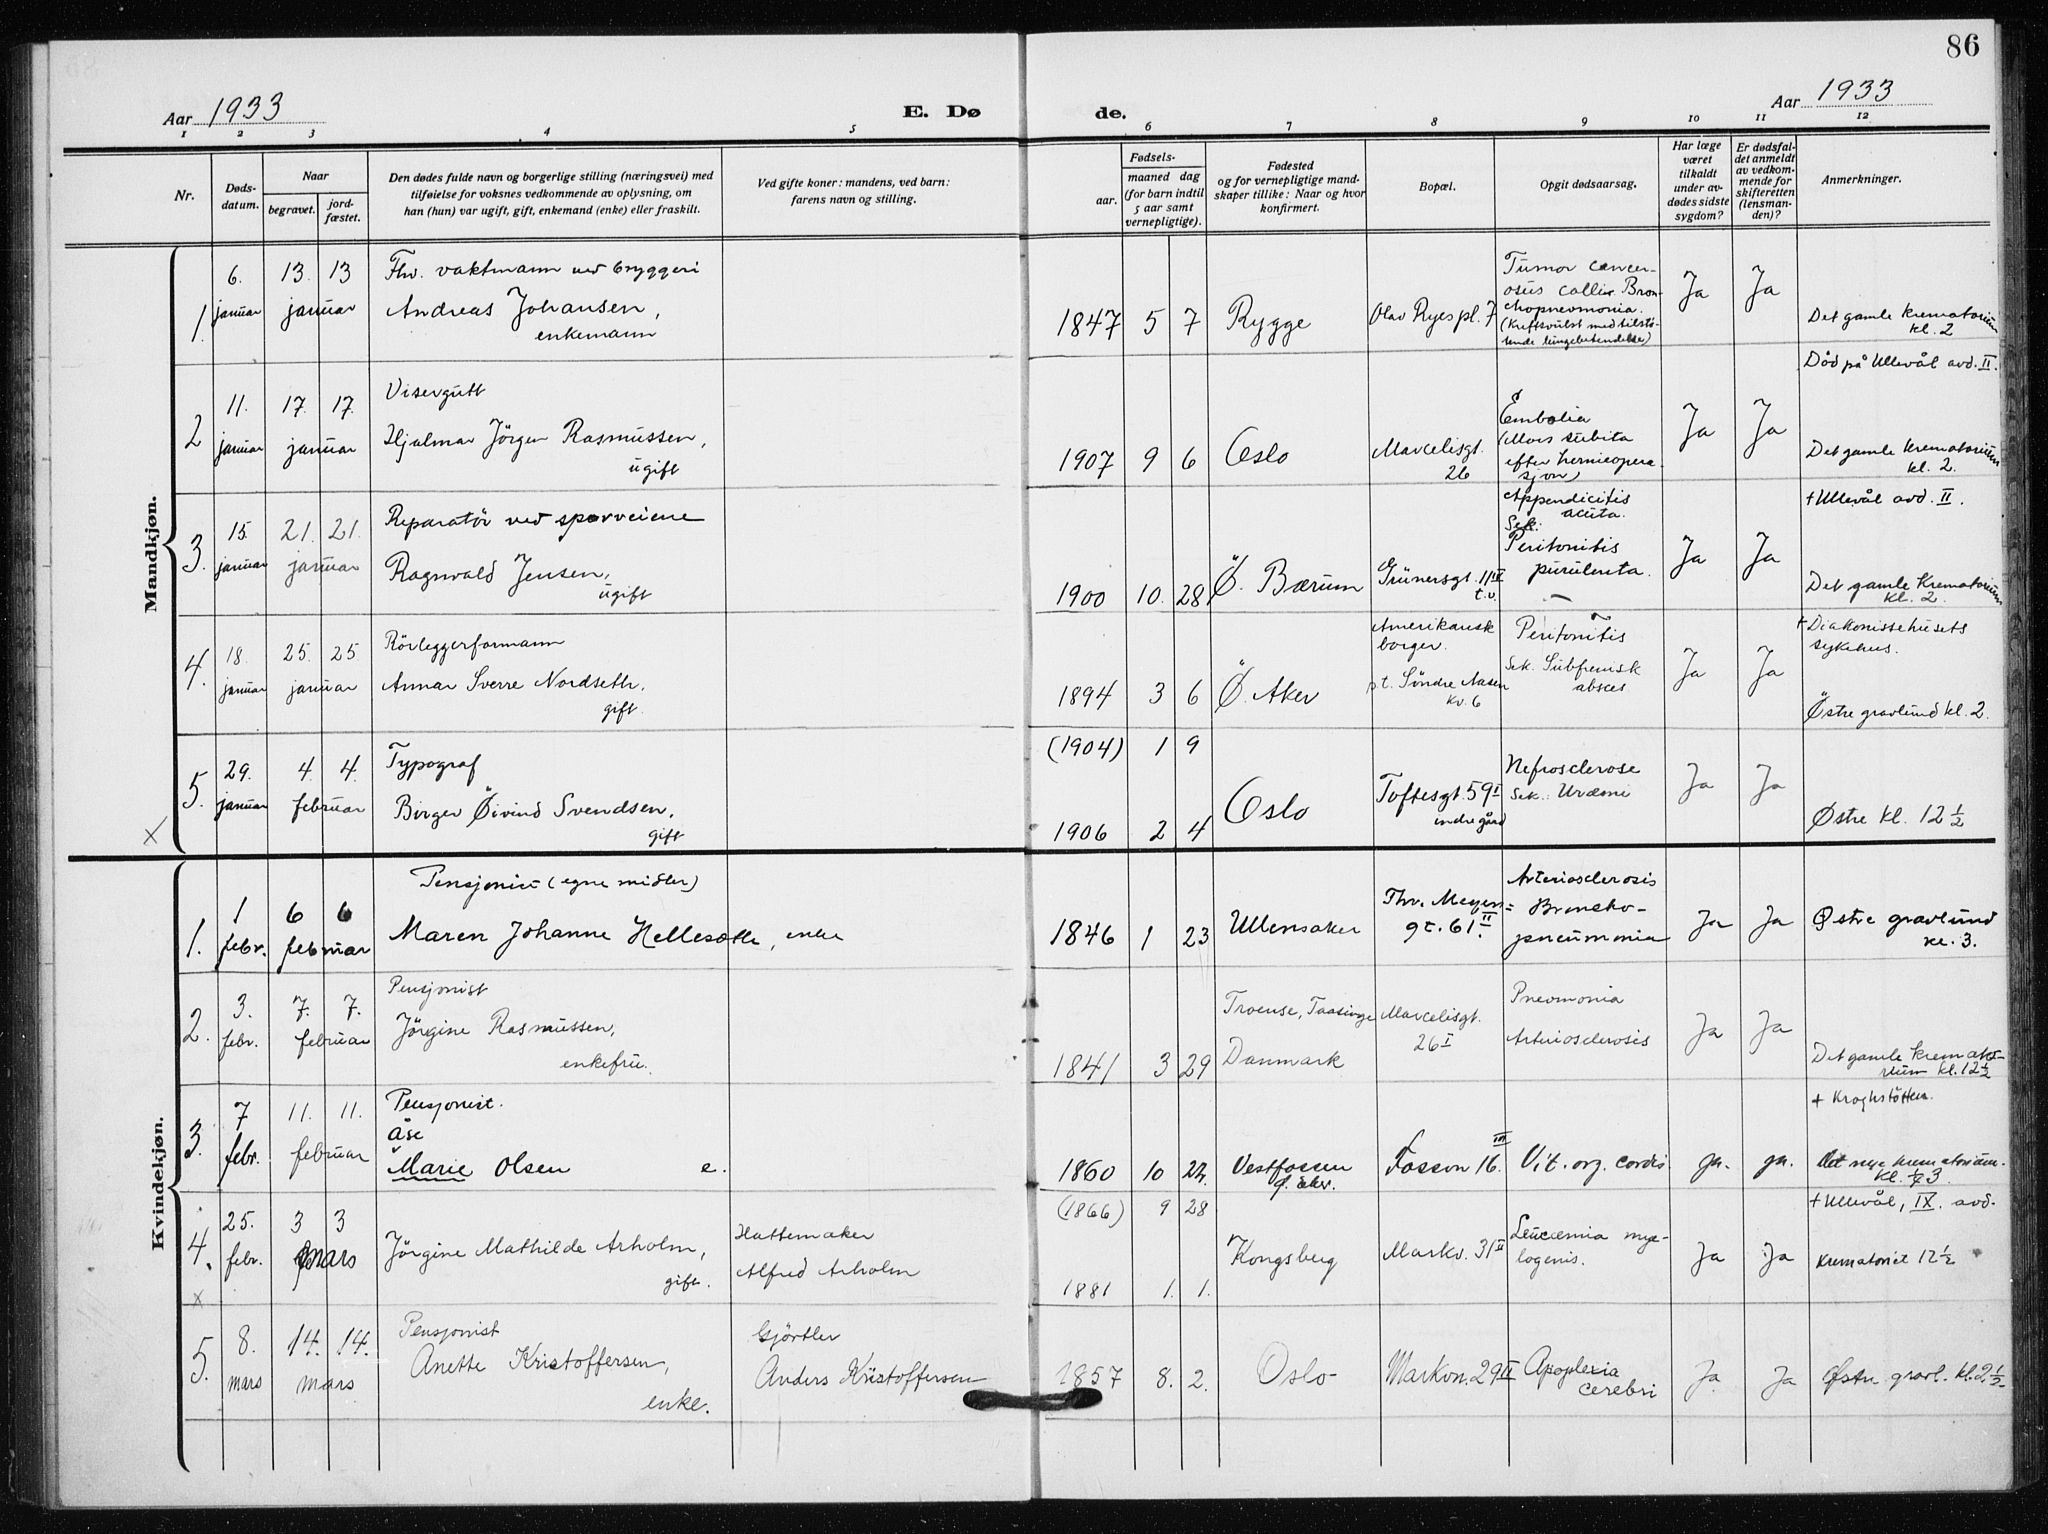 86
Aar 1933
E. Dø
de.
Aar 1933
1 2 3 4 5 6 7 8 9 10 11 12
Nr.
Døds-
datum.
Naar
begravet.
jord-
fæstet.
Den dødes fulde navn og borgerlige stilling (næringsvei) med
tilføielse for voksnes vedkommende av oplysning, om
han (hun) var ugift, gift, enkemand (enke) eller fraskilt.
Ved gifte koner: mandens, ved barn:
farens navn og stilling.
Fødsels-
aar.
maaned dag
(for barn indtil
5 aar samt
vernepligtige).
Fødested
og for vernepligtige mand-
skaper tillike: Naar og hvor
konfirmert.
Bopæl.
Opgit dødsaarsag.
Har læge
været
tilkaldt
under av-
dødes sidste
sygdom?
Er dødsfal-
det anmeldt
av vedkom-
mende for
skifteretten
(lensman-
den)?
Anmerkninger.
Mandkjøn.
1.
6. januar
13. 13 januar
Fhv. vaktmann ved bryggeri
Andreas Johansen,
enkemann
1847 5 7
Rygge
Olav Ryes pl. 7
Tumor cancer-
osus colli. Bron-
chopnevmonia.
(Kreftsvulst med tilstö-
tende lungebetendelse)
Ja
Ja
Det gamle krematorium
kl. 2
2
11. januar
17. 17. januar
Visergutt
Hjalmar Jörgen Rasmussen,
ugift
1907 9 6
Oslo
Marcelisgt.
26
Embolia
(Mors subita
efter hernieopera-
sjon)
Ja
Ja
Död på Ullevål avd. II.
Det gamle krematorium
kl. 2.
3.
15. januar
21. 21. januar
Reparatör ved sporveiene
Ragnvald Jensen,
ugift
1900 10. 28
Ö. Bærum
Grünersgt. 11 IV
t.v.
Appendicitis
acuta.
Sek:
Peritonitis
purulenta.
Ja
Ja
+ Ullevål avd. II.
Det gamle Krematorium
kl. 2.
4.
18. januar
25. 25 januar
Rörleggerformann
Annar Sverre Nordseth,
gift.
1894 3 6
Ö. Aker
Amerikansk
borger.
p.t. Söndre Aasen
kv. 6
Peritonitis
Sek. Subfrenisk
absces
Ja
Ja
+ Diakonissehusets
sykehus.
Östre gravlund kl. 2.
5.
29. januar
4. 4. februar
Typograf
Birger Öivind Svendsen,
gift
X
(1904) 1 9
1906 2 4
Oslo
Toftesgt. 59 I
indre gård
Nefrosclerose
Sek.: Uræmi
Ja
Ja
Østre kl. 12 1/2
Kvindekjøn.
1.
1 febr.
6 6 februar
Pensjonist (egne midler)
Maren Johanne Hellesætle, enke
1846 1 23
Ullensaker
Thv. Meyers=
gt. 61 II
Arteriosclerosis
Broncko-
pneumonia
Ja
Ja
Østre gravlund
kl. 3.
2.
3. febr.
7. 7. februar
Pensjonist
Jörgine Rasmussen,
enkefru.
1841 3 29
Troense, Taasinge
Danmark
Marcelisgt.
26 I
Pnevmonia
Arteriosclerosis
Ja
Ja
Det gamle kremato-
rium kl. 12 1/2
3.
7 febr.
11. 11. februar
Pensjonist.
Åse
Marie Olsen e.
1860 10 22.
Vestfossen
Ø. Eker.
Fossvn 16. III
Vit. org. cordis.
ja.
ja.
+ Kroghstötten.
Det nye krematorium.
kl. 3
4.
25. febr.
3 3 mars
Jörgine Mathilde Arholm,
gift.
Hattemaker
Alfred Arholm
X
(1866) 9 28
1881 1. 1.
Kongsberg
Markv. 31 II
Leucæmia mye-
logenis.
Ja
Ja
+ Ullevål, IX. avd.
Krematoriet 12 1/2
5.
8. mars
14. 14. mars
Pensjonist
Anette Kristoffersen,
enke.
Gjörtler
Anders Kristoffersen
1857 8. 2.
Oslo
Markvn. 29 II
Apoplexia
cerebri
Ja
Ja
Østre gravl. kl. 2 1/2